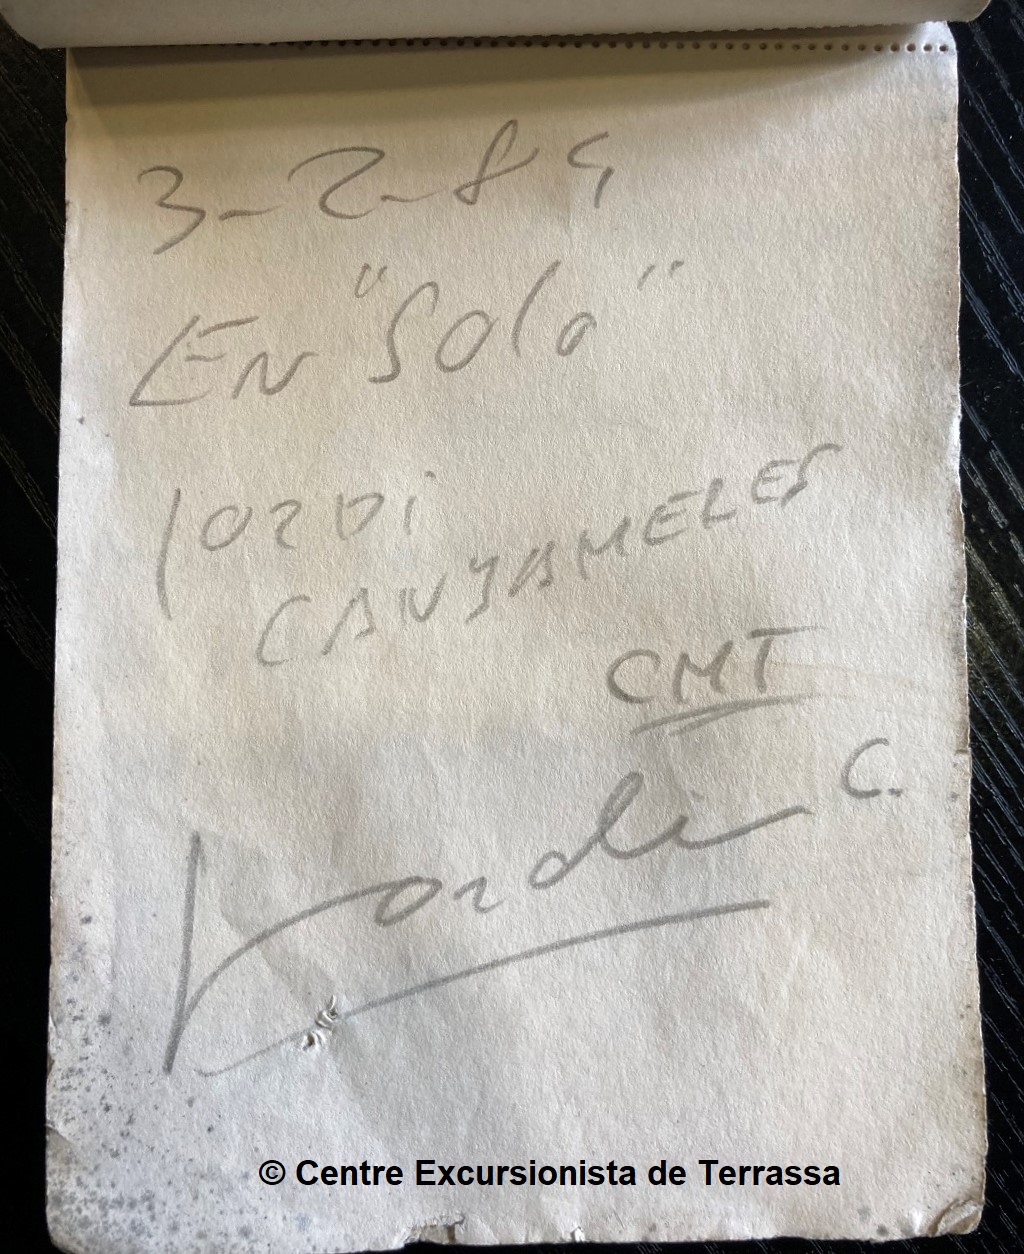 3-2-84
EN "SOlo"
JORDI
CANYAMELES
CMT
Jordi C.
© Centre Excursionista de Terrassa